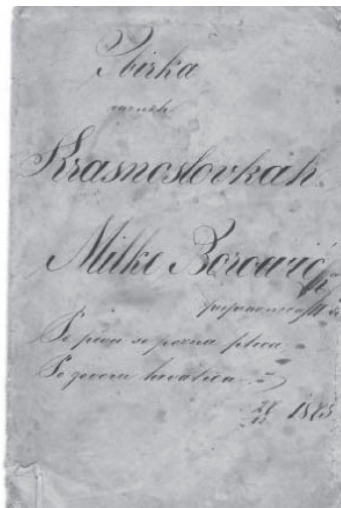 Zbirka
raznih
Krasnoslovkah.
Milke
Po pievu se pozna ptica
Po govoru hrvatica
1875